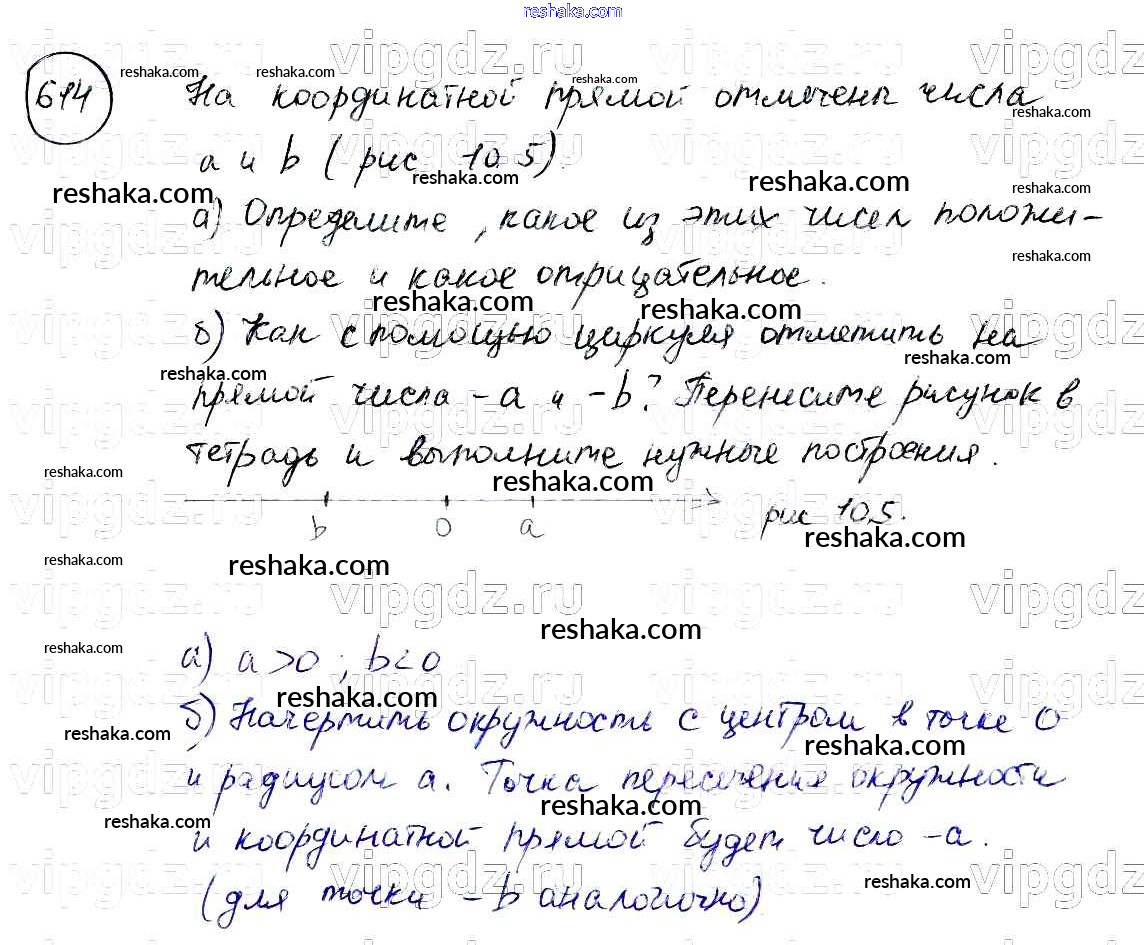 reshaka.com
614
На координатной прямой отмечены числа
a и b (рис 10.5).
а) Определите, какое из этих чисел положи-
тельное и какое отрицательное.
б) Как с помощью циркуля отметить на
прямой числа -a и -b? Перенесите рисунок в
тетрадь и выполните нужные построения.
b 0 a рис 10.5.
а) a>0; b<0
б) Начертить окружность с центром в точке 0
и радиусом a. Точка пересечения окружности
и координатной прямой будет число -a.
(для точки -b аналогично)